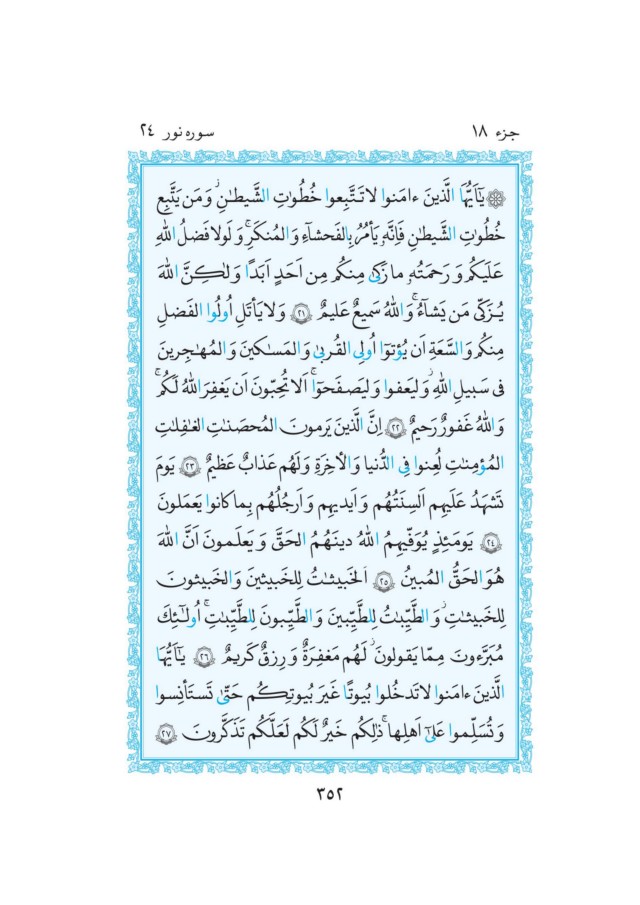 جزء ۱۸
سوره نور ۲٤
يَٰٓأَيُّهَا الَّذينَ ءامَنوا لا تَتَّبِعوا خُطُوٰتِ الشَّيطٰنِ ۚ وَ مَن يَتَّبِع
خُطُوٰتِ الشَّيطٰنِ فَاِنَّهُ يَأمُرُ بِالفَحشاءِ وَ المُنكَرِ ۚ وَ لَولا فَضلُ اللهِ
عَلَيكُم وَ رَحمَتُهُ ما زَكىٰ مِنكُم مِن اَحَدٍ اَبَدًا وَ لٰكِنَّ اللهَ
يُزَكّى مَن يَشاءُ ۗ وَ اللهُ سَميعٌ عَليمٌ ۲۱ وَ لا يَأتَلِ اُولُوا الفَضلِ
مِنكُم وَ السَّعَةِ اَن يُؤتوٓا اُولِى القُربىٰ وَ المَسٰكينَ وَ المُهٰجِرينَ
فى سَبيلِ اللهِ ۖ وَ ليَعفوا وَ ليَصفَحوٓا ۗ اَلا تُحِبّونَ اَن يَغفِرَ اللهُ لَكُم ۗ
وَ اللهُ غَفورٌ رَحيمٌ ۲۲ اِنَّ الَّذينَ يَرمونَ المُحصَنٰتِ الغٰفِلٰتِ
المُؤمِنٰتِ لُعِنوا فِى الدُّنيا وَ الأخِرَةِ وَ لَهُم عَذابٌ عَظيمٌ ۲۳ يَومَ
تَشهَدُ عَلَيهِم اَلسِنَتُهُم وَ اَيديهِم وَ اَرجُلُهُم بِما كانوا يَعمَلونَ
۲٤ يَومَئِذٍ يُوَفّيهِمُ اللهُ دينَهُمُ الحَقَّ وَ يَعلَمونَ اَنَّ اللهَ
هُوَ الحَقُّ المُبينُ ۲٥ اَلخَبيثٰتُ لِلخَبيثينَ وَ الخَبيثونَ
لِلخَبيثٰتِ ۖ وَ الطَّيِّبٰتُ لِلطَّيِّبينَ وَ الطَّيِّبونَ لِلطَّيِّبٰتِ ۚ اُولٰئِكَ
مُبَرَّءونَ مِمّا يَقولونَ ۖ لَهُم مَغفِرَةٌ وَ رِزقٌ كَريمٌ ۲٦ يَٰٓأَيُّهَا
الَّذينَ ءامَنوا لا تَدخُلوا بُيوتًا غَيرَ بُيوتِكُم حَتّىٰ تَستَأنِسوا
وَ تُسَلِّموا عَلىٰٓ اَهلِها ۚ ذٰلِكُم خَيرٌ لَكُم لَعَلَّكُم تَذَكَّرونَ ۲۷
۳٥۲